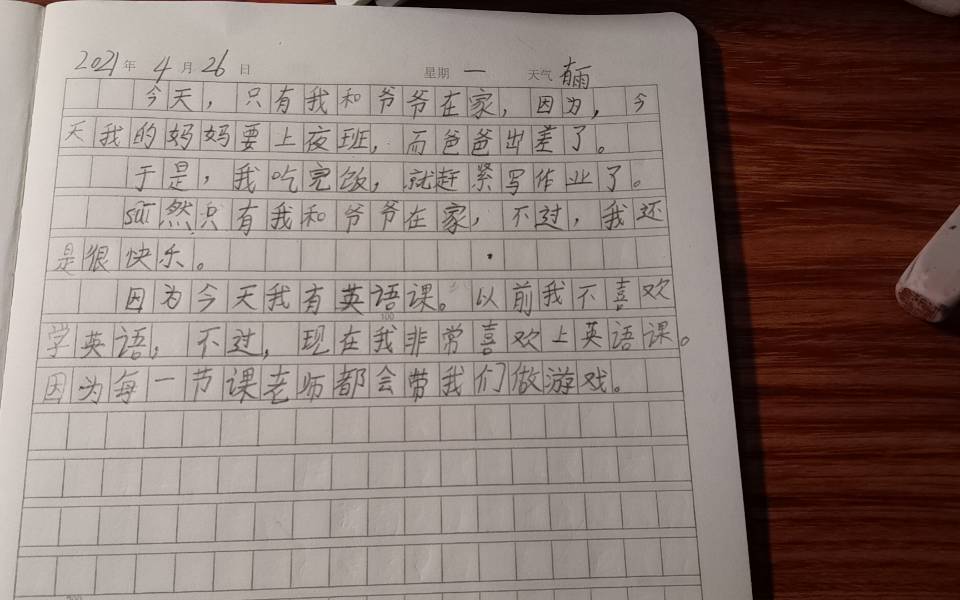 2021年 4月26日 星期一 天气 有雨
今天，只有我和爷爷在家，因为，今
天我的妈妈要上夜班，而爸爸出差了。
于是，我吃完饭，就赶紧写作业了。
suī然只有我和爷爷在家，不过，我还
是很快乐。
因为今天我有英语课。以前我不喜欢
100
学英语，不过，现在我非常喜欢上英语课。
因为每一节课老师都会带我们做游戏。